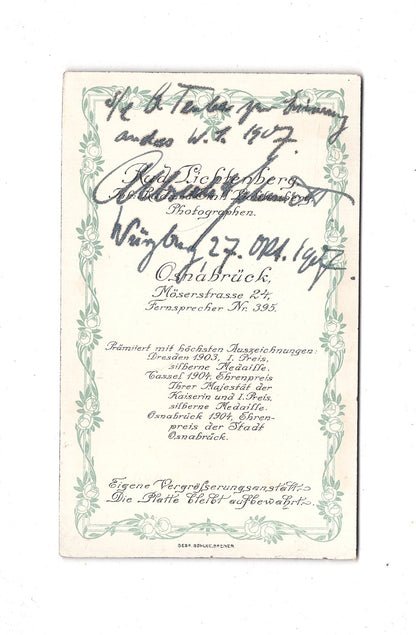 s/l A. Teuber zur Erinnerung
an das W.S. 1907.
Rud. Lichtenberg
Photographen.
Würzburg, 27. Okt. 1907.
Osnabrück,
Möserstrasse 24,
Fernsprecher Nr. 395.
Prämiiert mit höchsten Auszeichnungen:
Dresden 1903, I. Preis,
silberne Medaille.
Cassel 1904, Ehrenpreis
Ihrer Majestät der
Kaiserin und I. Preis,
silberne Medaille.
Osnabrück 1904, Ehren-
preis der Stadt
Osnabrück.
Eigene Vergrößerungsanstalt.
Die Platte bleibt aufbewahrt.
GEBR. BÖHLKE, BREMER